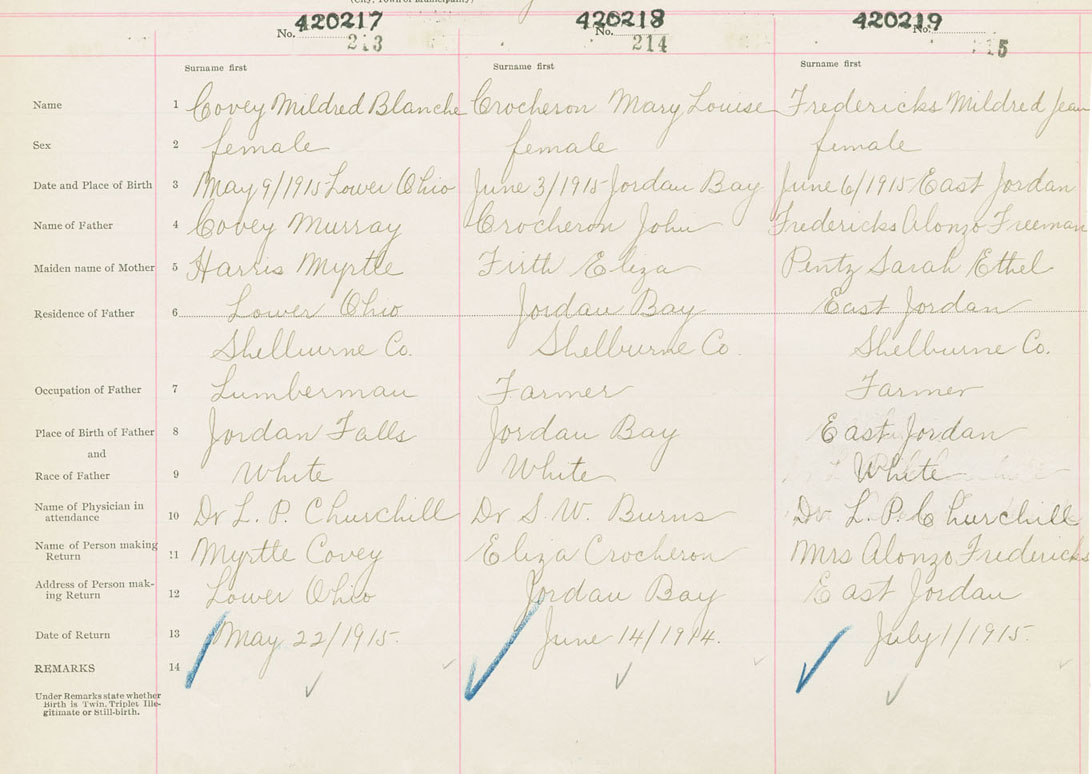 (City, Town or Municipality)
420217 420218 420219
No. 213 No. 214 No. 15
Surname first Surname first Surname first
Name 1 Covey Mildred Blanche Crocheron Mary Louise Fredericks Mildred Jean
Sex 2 female female female
Date and Place of Birth 3 May 9/1915 Lower Ohio June 3/1915 Jordan Bay June 6/1915 East Jordan
Name of Father 4 Covey Murray Crocheron John Fredericks Alonzo Freeman
Maiden name of Mother 5 Harris Myrtle Firth Eliza Pentz Sarah Ethel
Residence of Father 6 Lower Ohio Jordan Bay East Jordan
Shelburne Co. Shelburne Co. Shelburne Co.
Occupation of Father 7 Lumberman Farmer Farmer
Place of Birth of Father 8 Jordan Falls Jordan Bay East Jordan
and
Race of Father 9 White White White
Name of Physician in
attendance 10 Dr L. P. Churchill Dr S. W. Burns Dr L. P. Churchill
Name of Person making
Return 11 Myrtle Covey Eliza Crocheron Mrs Alonzo Fredericks
Address of Person mak-
ing Return 12 Lower Ohio Jordan Bay East Jordan
Date of Return 13 May 22/1915. June 14/1914. July 1/1915.
REMARKS 14
Under Remarks state whether
Birth is Twin, Triplet Ille-
gitimate or Still-birth.